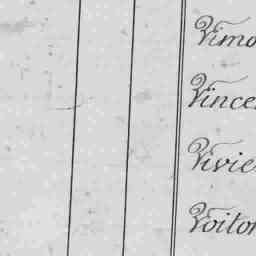 Vimo
Vince
Vivie
Voiton